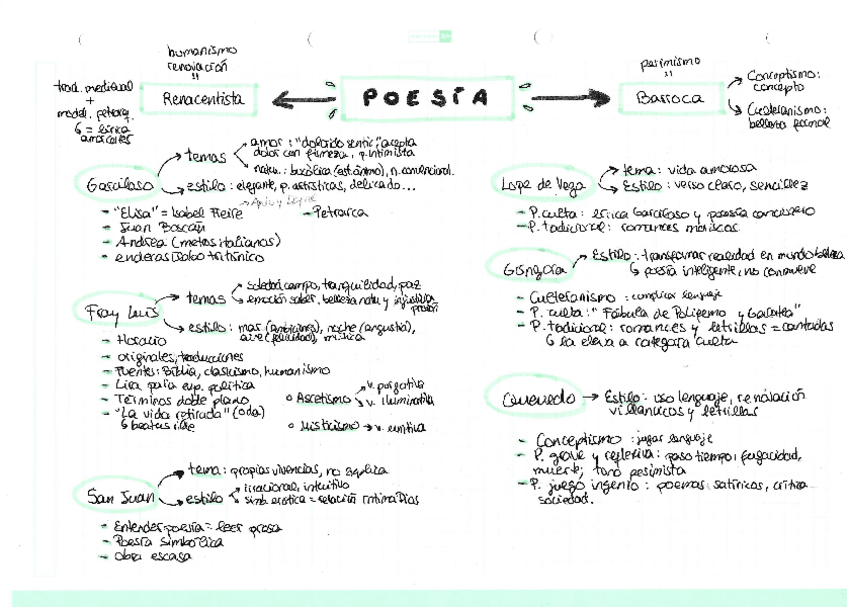 humanismo
renovación
trad. medieval
+
model. petrarq.
= lírica
amorcortés
Renacentista
POESÍA
pesimismo
Barroca
Conceptismo:
concepto
Culteranismo:
belleza formal
Garcilaso
temas
amor: "dolorido sentir", acepta
dolor con firmeza, p. intimista
natu.: bucólica (est. ánimo), n. convencional.
estilo: elegante, p. artísticas, delicado...
- "Elisa" = Isabel Freire
- Petrarca
- Juan Boscán
- Andrea (metros italianos)
- endecasílabo
Fray Luis
temas
soledad campo, tranquilidad, paz
emoción saber, belleza natu y
estilo: mar (ambiciones), noche (angustia),
aire (felicidad), música
- Horacio
- originales, traducciones
- Fuentes: Biblia, clasicismo, humanismo
- Lira para exp. poética
- Términos doble plano
- "La vida retirada" (oda)
beatus ille
Ascetismo
v. purgativa
v. iluminativa
Misticismo → v. unitiva
San Juan
tema: propias vivencias, no explica
estilo
irracional, intuitivo
simb. erótica = relación íntima Dios
- Entender poesía = leer prosa
- Poesía simbólica
- Obra escasa
Lope de Vega
tema: vida amorosa
Estilo: verso claro, sencillez
- P. culta: lírica Garcilaso y poesía cancionero
- P. tradicional: romances moriscos
Góngora
Estilo: transformar realidad en mundo belleza
poesía inteligente, no conmueve
- Culteranismo: complicar lenguaje
- P. culta: "Fábula de Polifemo y Galatea"
- P. tradicional: romances y letrillas = cantadas
la eleva a categoría culta
Quevedo → Estilo: uso lenguaje, renovación
villancicos y letrillas
- Conceptismo: jugar lenguaje
- P. grave y reflexiva: paso tiempo, fugacidad,
muerte; tono pesimista
- P. juego ingenio: poemas satíricos, crítica
sociedad.